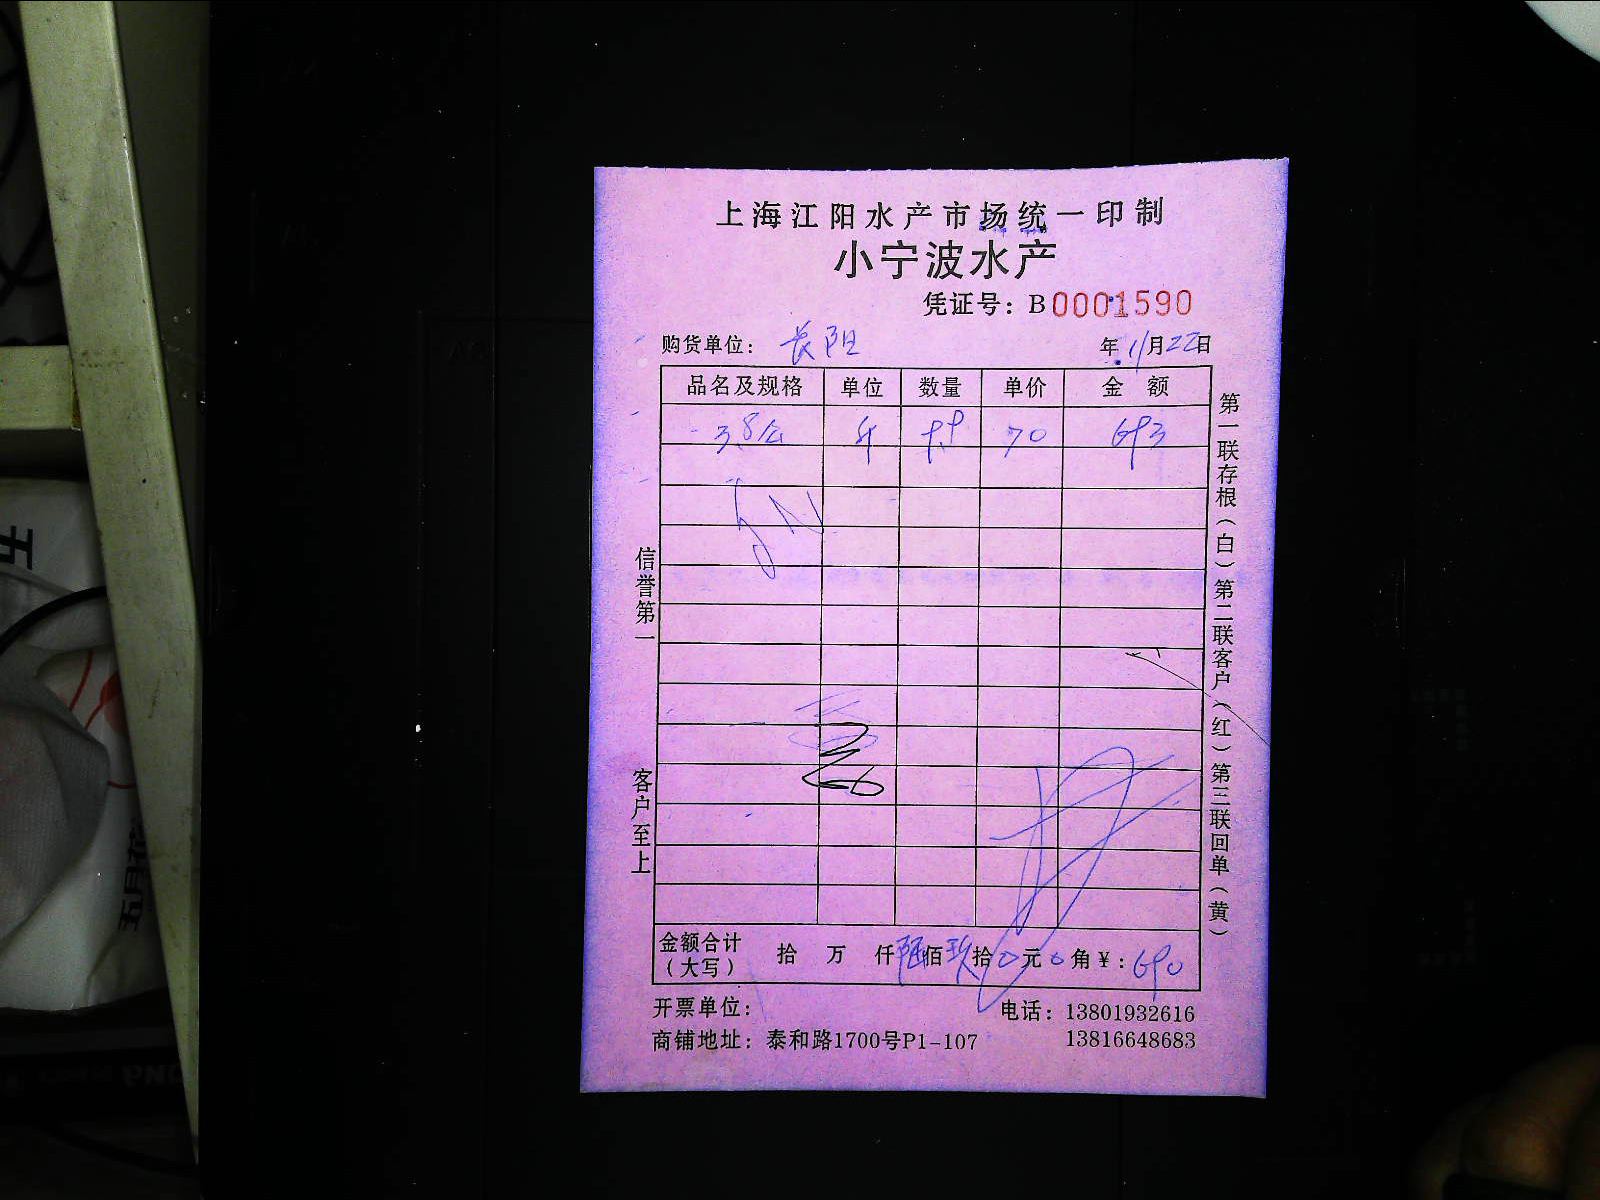 上海江阳水产市场统一印制
小宁波水产
凭证号：B0001590
购货单位：长阳 年11月22日
品名及规格 单位 数量 单价 金额
3.8公 斤 9.9 70 693
信誉第一
客户至上
第一联存根（白）第二联客户（红）第三联回单（黄）
金额合计（大写） 拾 万 仟陆佰玖拾0元0角¥：690
开票单位： 电话：13801932616
商铺地址：泰和路1700号P1-107 13816648683
五
五月花